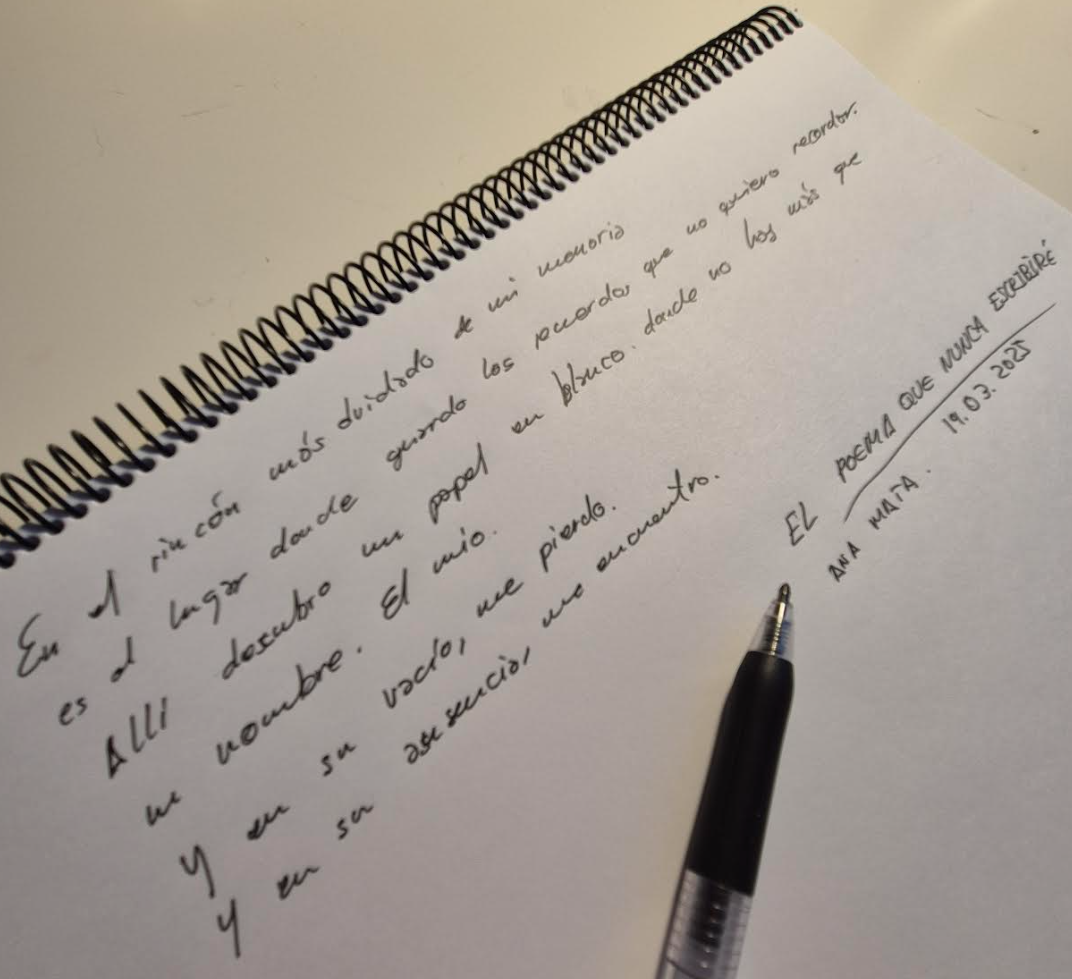 En el rincón más olvidado de mi memoria
es el lugar donde guardo los recuerdos que no quiero recordar.
Allí descubro un papel en blanco. donde no hay más que
un nombre. El mío.
Y en su vacío, me pierdo.
Y en su ausencia, me encuentro.
EL POEMA QUE NUNCA ESCRIBIRÉ
ANA MATA. 19.03.2025